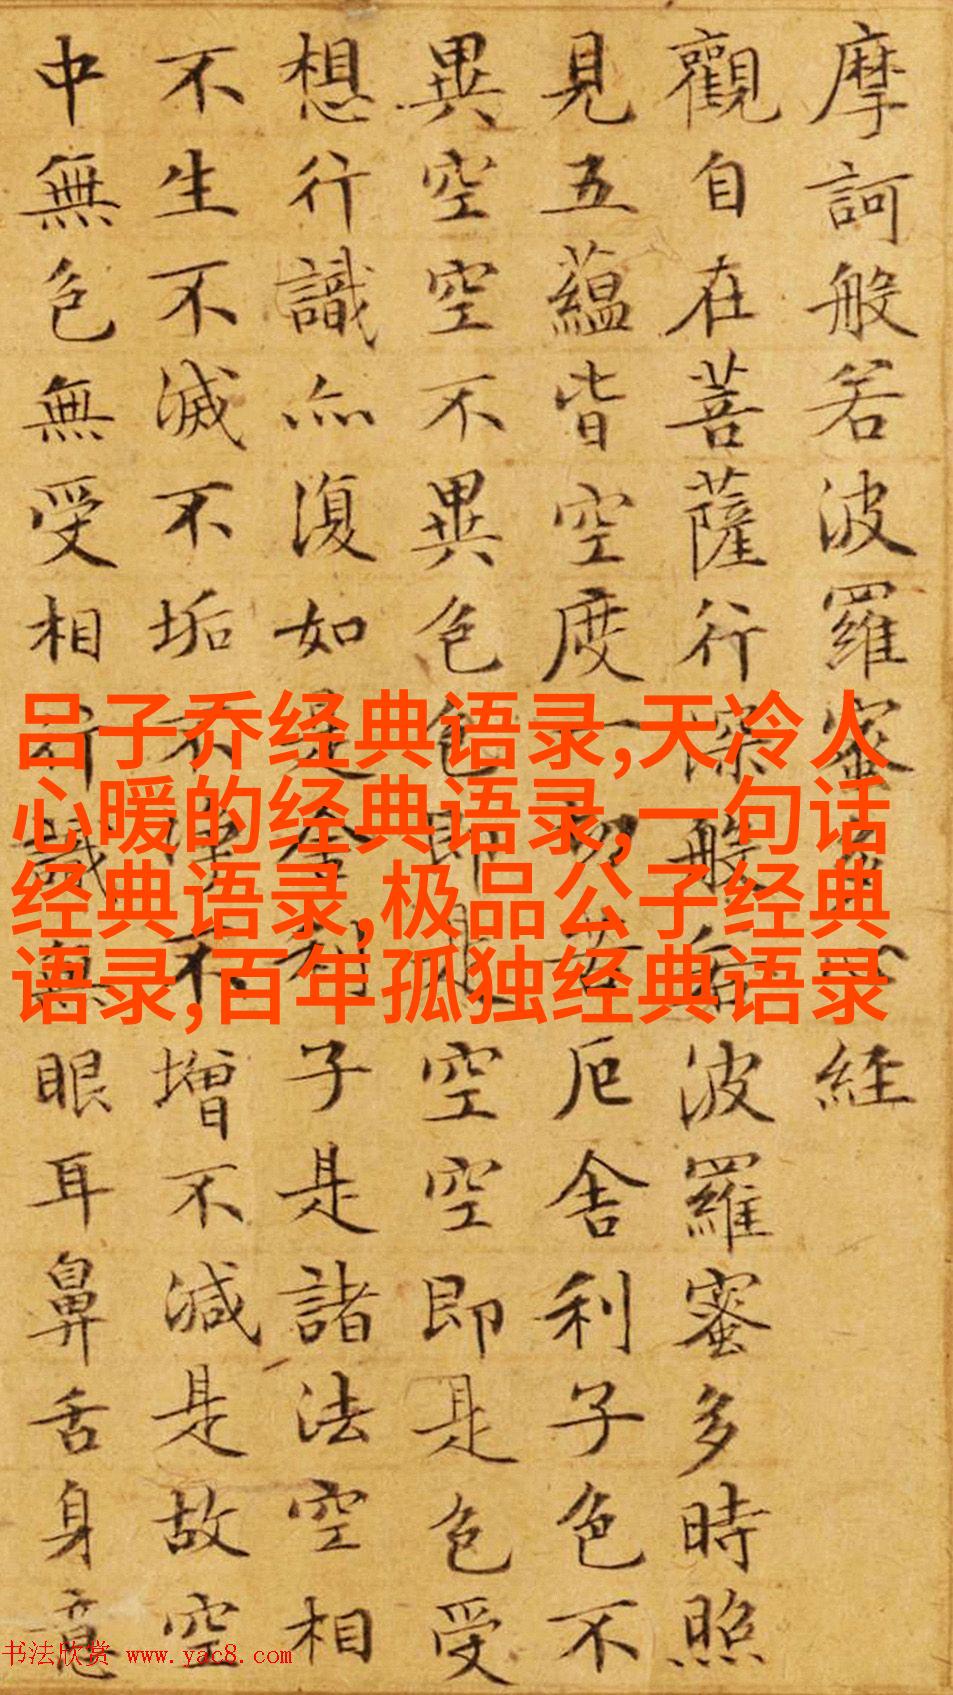 摩訶般若波羅蜜多心経
觀自在菩薩行深般若波羅蜜多時照
見五蘊皆空度一切苦厄舍利子色不
異空空不異色色即是空空即是色受
想行識亦復如是舍利子是諸法空相
不生不滅不垢不淨不增不減是故空
中無色無受相行識無眼耳鼻舌身意
吕子乔经典语录,天冷人
心暖的经典语录,一句话
经典语录,极品公子经典
语录,百年孤独经典语录
书法欣赏 www.yac8.com